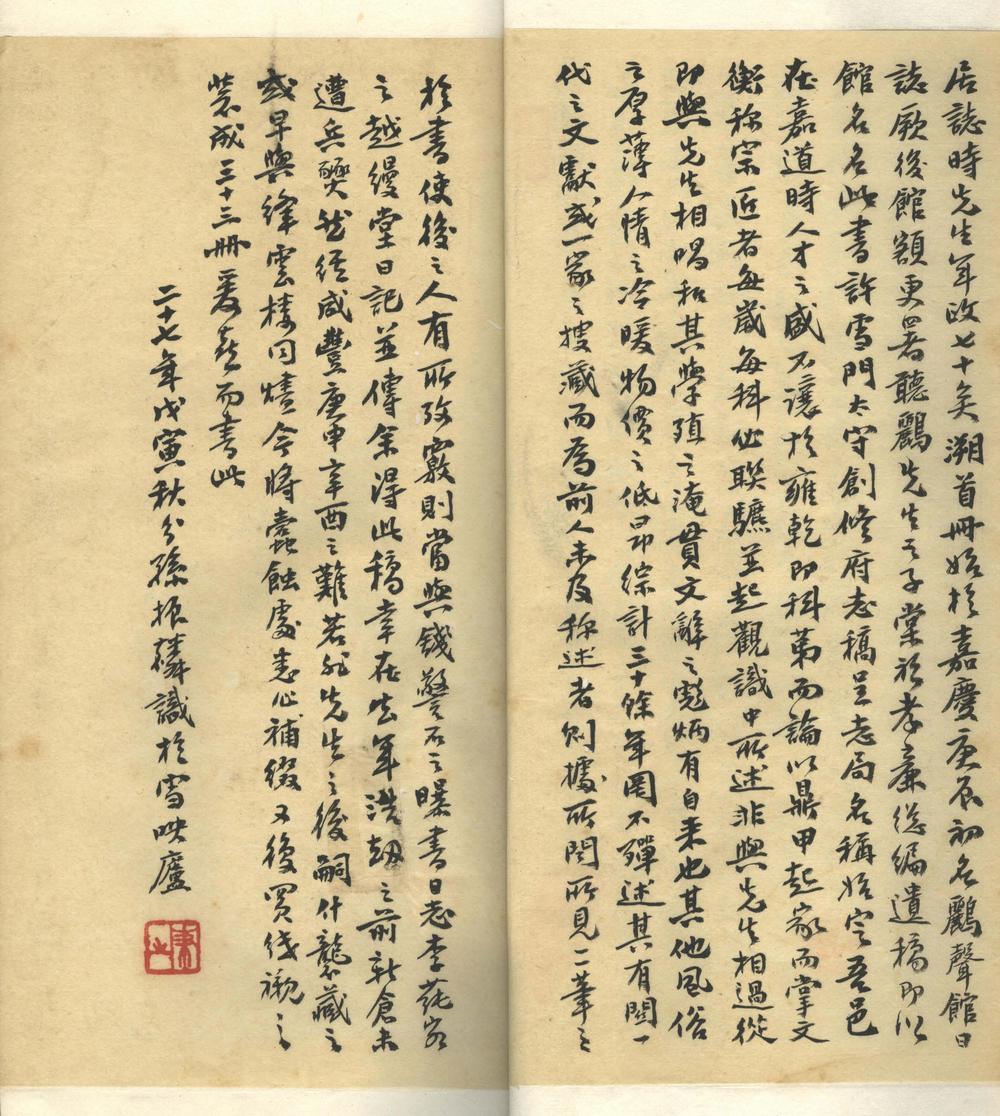 居誌時先生年政七十矣溯首冊始於嘉慶庚辰初名鸝聲館日
誌厥後館額更署聽鸝先生之子棠於孝廉總編遺稿即以
館名名此書許雪門太守創修府志稿呈志局名稱始定吾邑
在嘉道時人才之盛不讓於雍乾即科第而論以鼎甲起家而掌文
衡称宗匠者每歲每科必聯驪並起觀識中所述非與先生相過從
即與先生相唱和其學殖之淹貫文辭之彪炳有自来也其他風俗
之厚薄人情之冷暖物價之低昂綜計三十餘年罔不殫述其有關一
代之文獻或一家之搜藏而為前人未及称述者則據所聞所見一一筆之
於書使後之人有所考覈則當與錢警石之曝書日志李蒓客
之越縵堂日記並傳余得此稿幸在去年浩劫之前新倉未
遭兵燹然經咸豐庚申辛酉之難若非先生之後嗣什襲藏之
或早與絳雲樓同燼今將蠹蝕處悉心補綴又復買线襯之
裝成三十三冊爰喜而書此
二十七年戊寅秋分孫振麟識於雪映廬